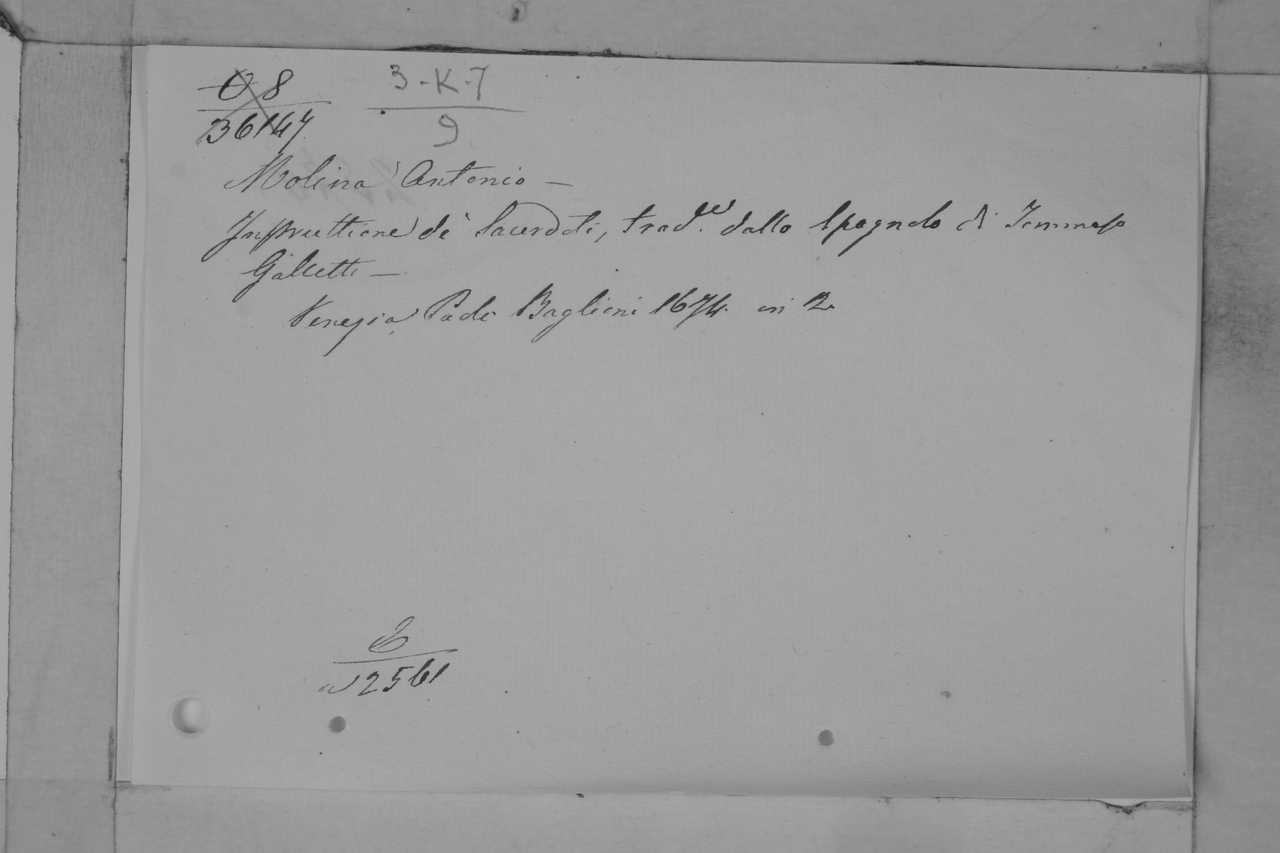 O 8 3-K-7
36147 9
Molina Antonio —
Instruttione de' Sacerdoti, trad.e dallo Spagnolo di Tommaso
Galletti —
Venezia, Paolo Baglioni 1674. in 12.
2561